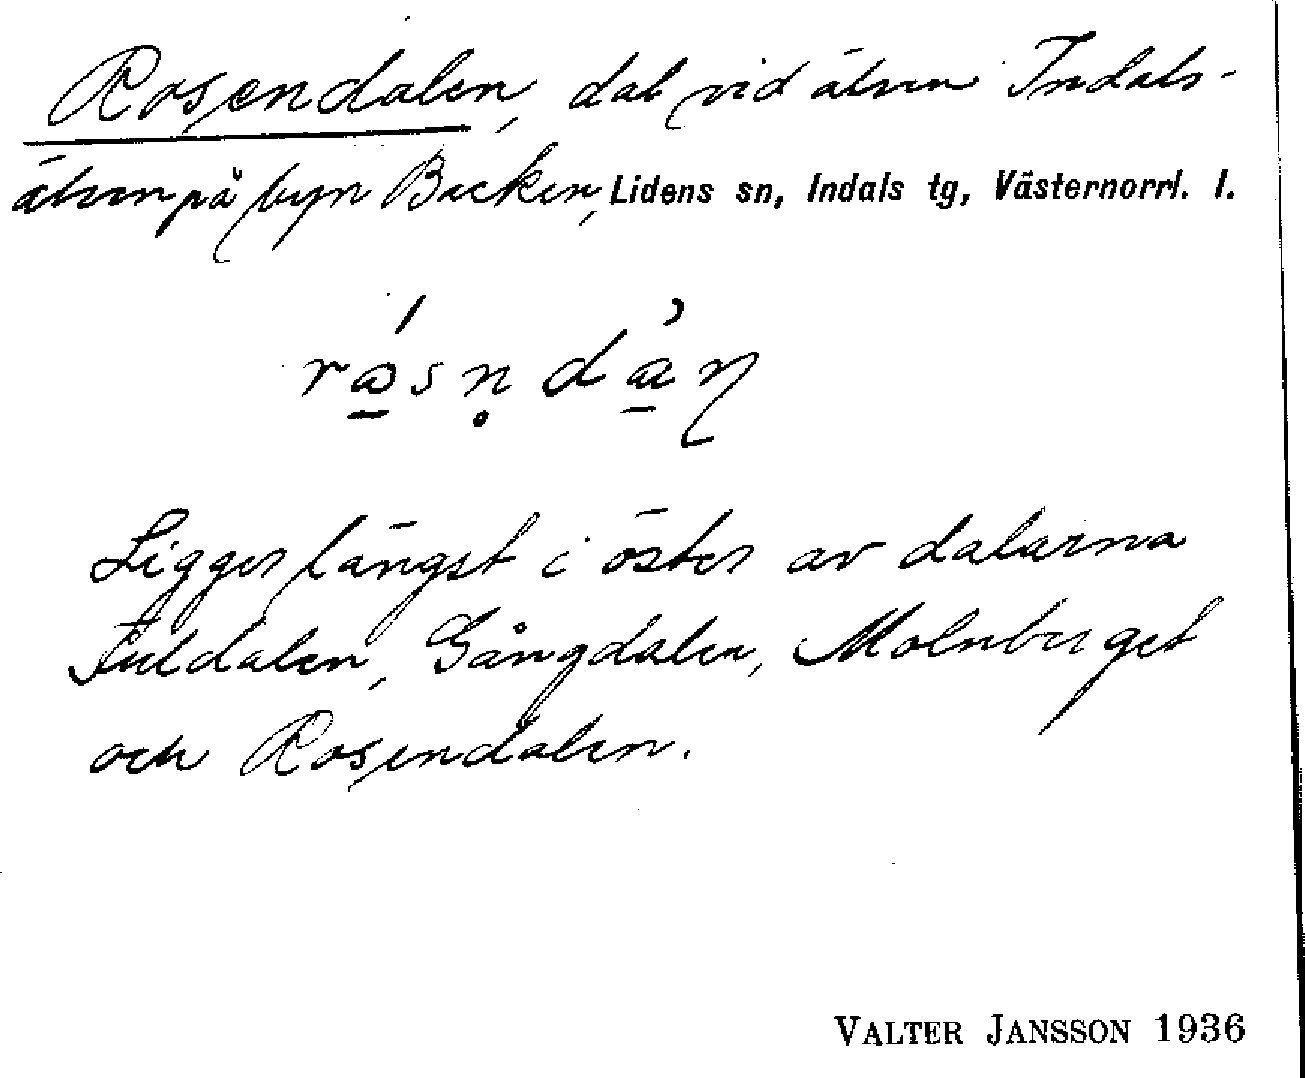 Rosendalen, dal vid älven Indals-
älven på byn Backen, Lidens sn, Indals tg, Västernorrl. l.
Ligger längst i öster av dalarna
Fuldalen, Gångdalen, Molnberget
och Rosendalen.
VALTER JANSSON 1936